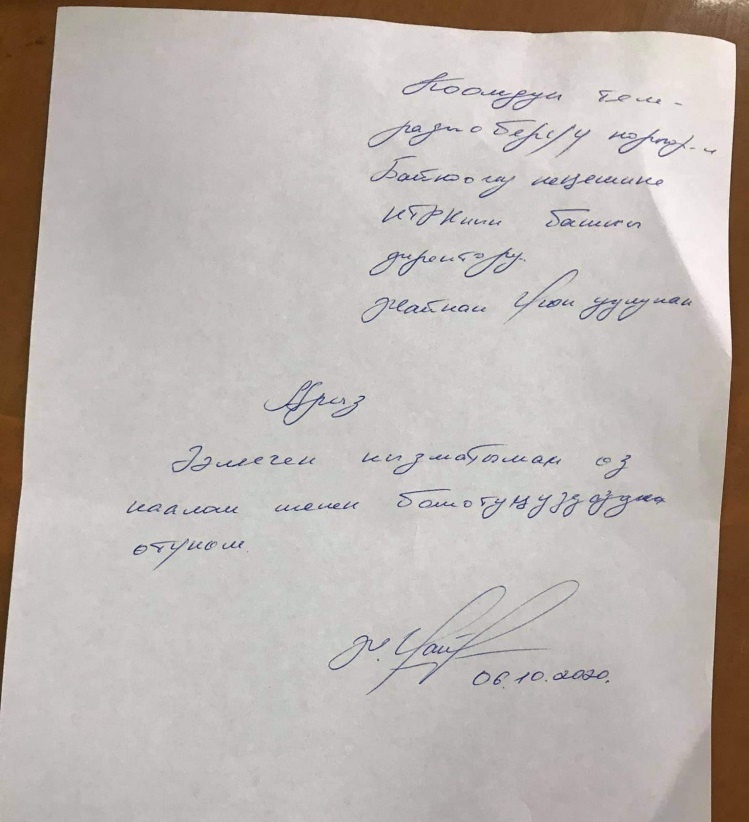 Коомдук теле-
радио берүү корпор-н
Байкоочу кеңешине
КТРКнин башкы
директору
Жайнак Үсөн уулунан
Арыз
Ээлеген кызматыман өз
каалоом менен бошотуңуздарды
өтүнөм.
06.10.2020.